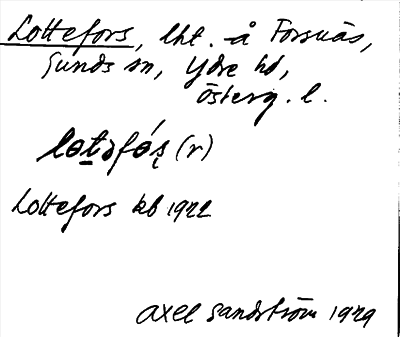 Lottefors, lht. å Forsnäs,
Sunds sn, Ydre hd,
Österg. l.
lɵtəfɵ́ș (r)
Lottefors kb 1922
Axel Sandström 1929